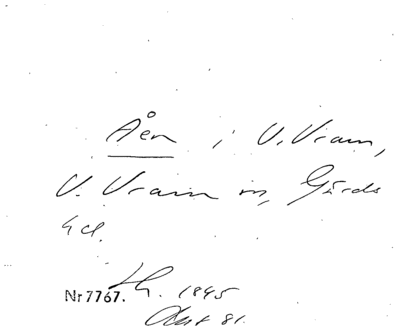 Åen i V. Vram,
V. Vram sn, Gärds
hd.
Nr 7767. Lh. 1845
Akt 81.